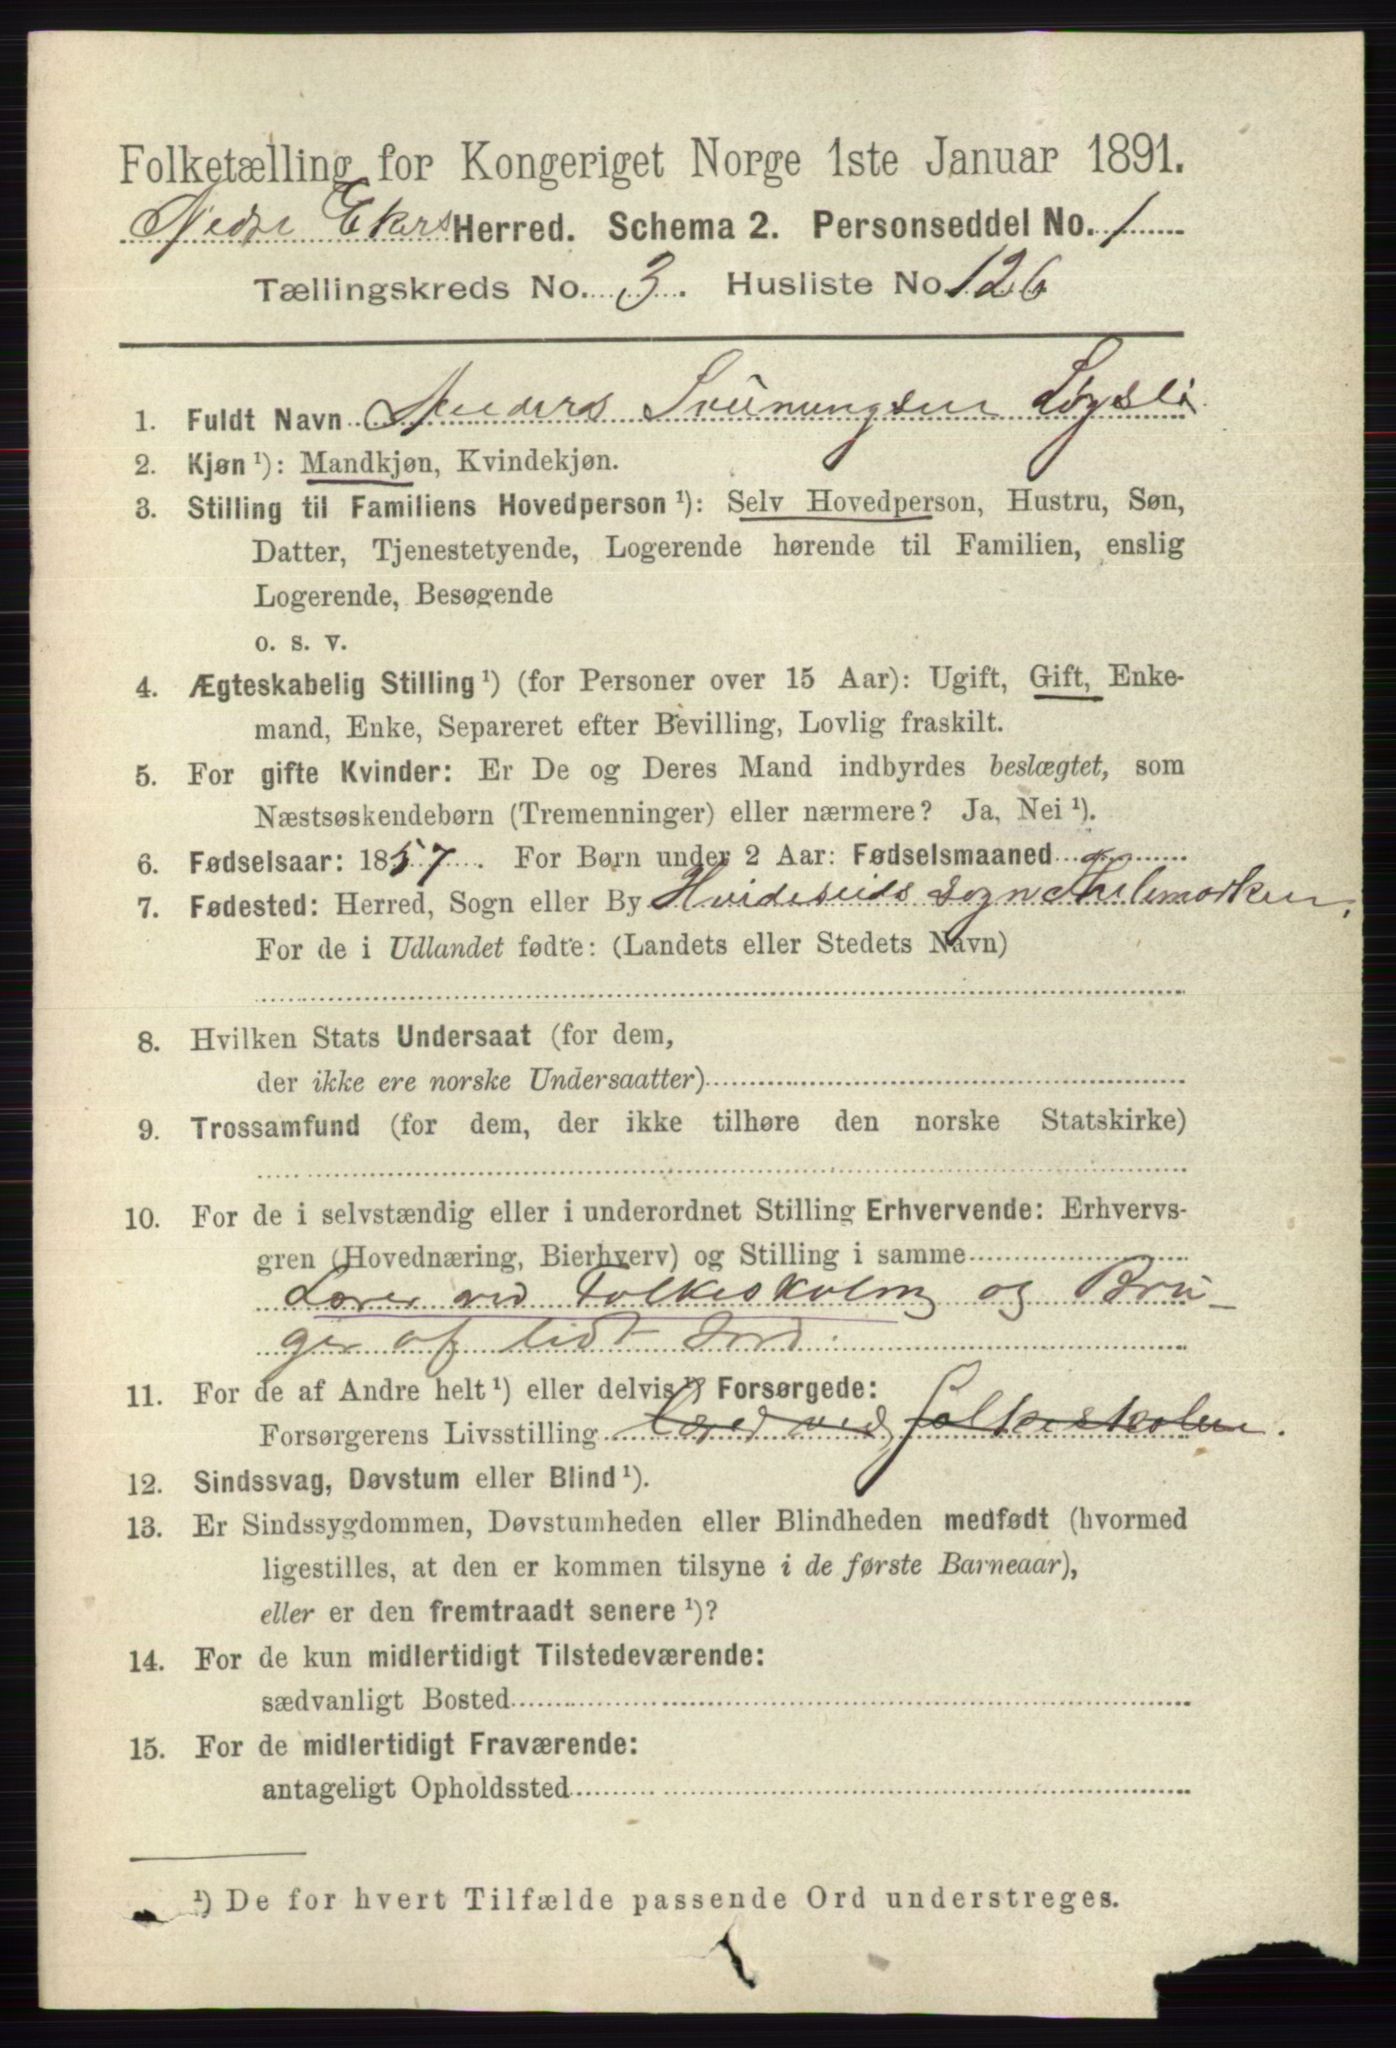 Folketælling for Kongeriget Norge 1ste Januar 1891.
Nedre Ekers Herred. Schema 2. Personseddel No. 1
Tællingskreds No. 3. Husliste No. 126
1. Fuldt Navn Anders Sveinungsen Løgsli
2. Kjøn ¹): Mandkjøn, Kvindekjøn.
3. Stilling til Familiens Hovedperson ¹): Selv Hovedperson, Hustru, Søn,
Datter, Tjenestetyende, Logerende hørende til Familien, enslig
Logerende, Besøgende
o. s. v.
4. Ægteskabelig Stilling ¹) (for Personer over 15 Aar): Ugift, Gift, Enke-
mand, Enke, Separeret efter Bevilling, Lovlig fraskilt.
5. For gifte Kvinder: Er De og Deres Mand indbyrdes beslægtet, som
Næstsøskendebørn (Tremenninger) eller nærmere? Ja, Nei ¹).
6. Fødselsaar: 1857. For Børn under 2 Aar: Fødselsmaaned
7. Fødested: Herred, Sogn eller By Hvideseids sogn Thelemarken.
For de i Udlandet fødte: (Landets eller Stedets Navn)
8. Hvilken Stats Undersaat (for dem,
der ikke ere norske Undersaatter)
9. Trossamfund (for dem, der ikke tilhøre den norske Statskirke)
10. For de i selvstændig eller i underordnet Stilling Erhvervende: Erhvervs-
gren (Hovednæring, Bierhverv) og Stilling i samme
Lærer ved Folkeskolen og Bru-
ger af lidt Jord.
11. For de af Andre helt ¹) eller delvis ¹) Forsørgede:
Forsørgerens Livsstilling Lærer ved folkeskolen.
12. Sindssvag, Døvstum eller Blind ¹).
13. Er Sindssygdommen, Døvstumheden eller Blindheden medfødt (hvormed
ligestilles, at den er kommen tilsyne i de første Barneaar),
eller er den fremtraadt senere ¹)?
14. For de kun midlertidigt Tilstedeværende:
sædvanligt Bosted
15. For de midlertidigt Fraværende:
antageligt Opholdssted
¹) De for hvert Tilfælde passende Ord understreges.